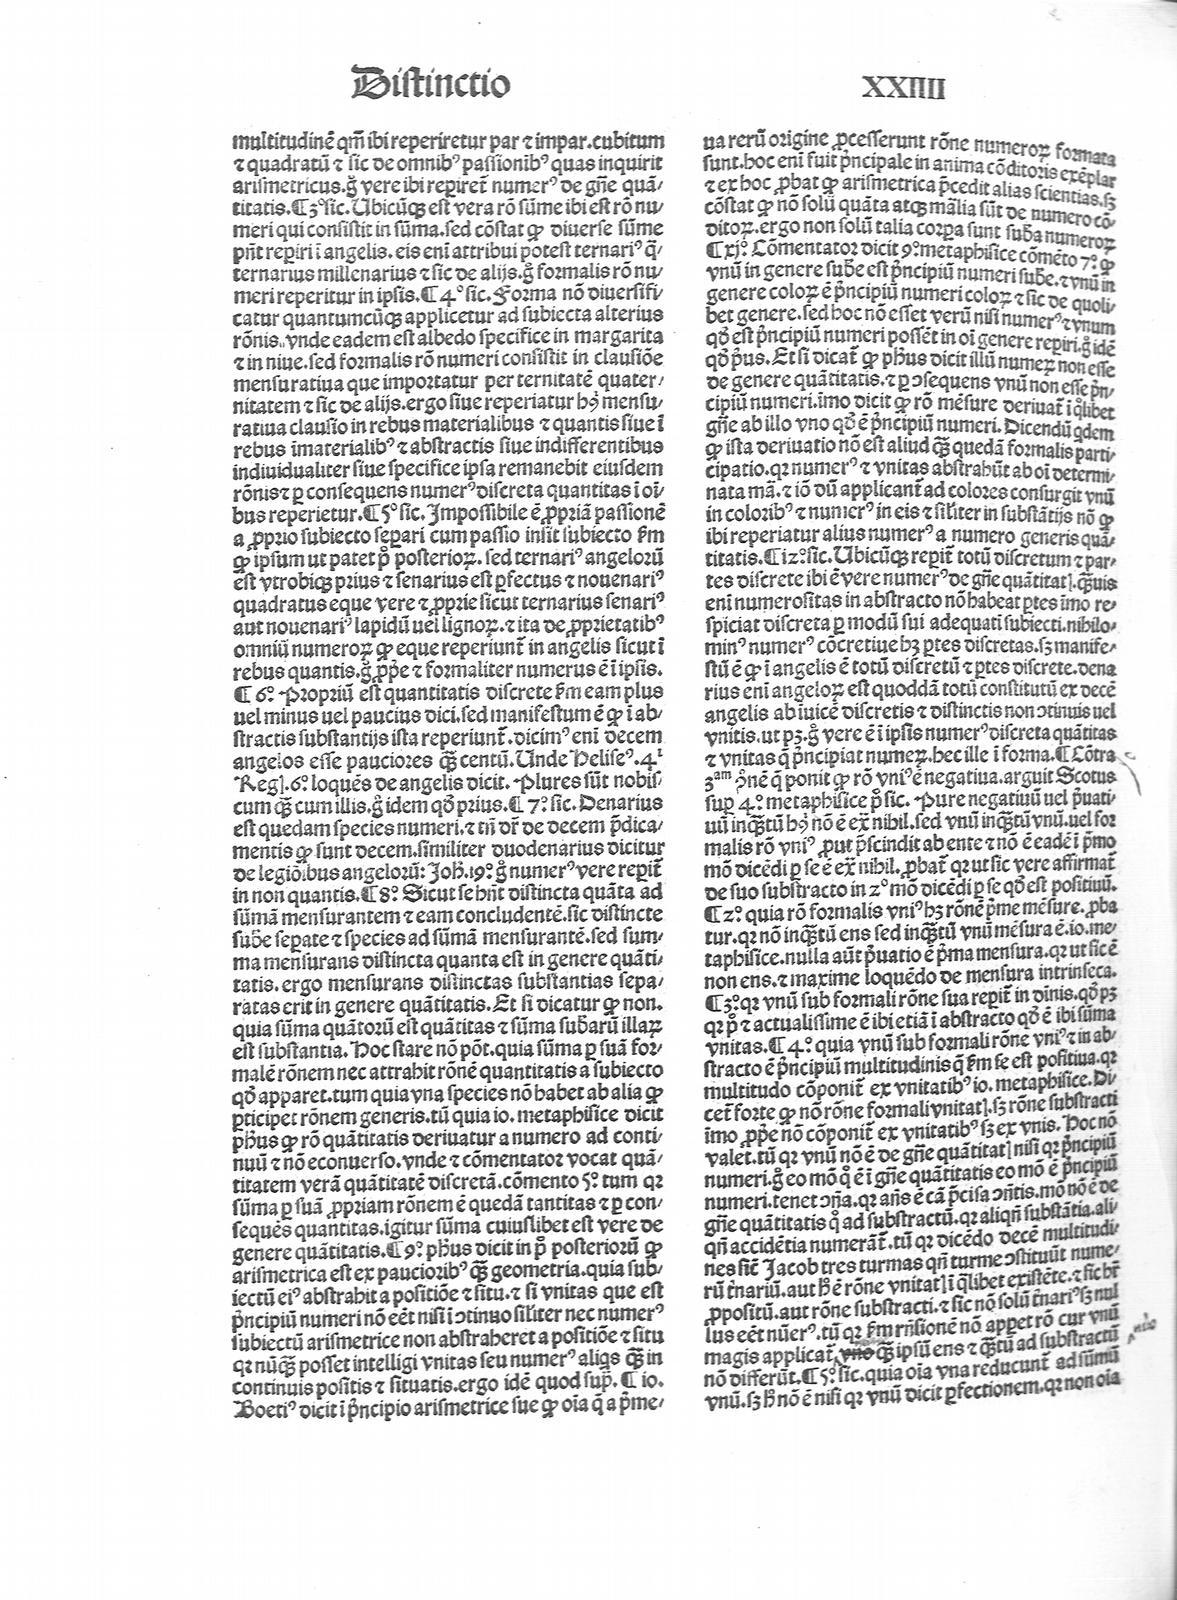 Distinctio
XXIIII
multitudinē qm̄ ibi reperiretur par ⁊ impar. cubitum
⁊ quadratū ⁊ sic de omnibꝰ passionibꝰ quas inquirit
arismetricus. g̊ vere ibi reꝑiret̄ numerꝰ de gn̄e quā/
titatis. ¶ 3ͦ sic. Ubicūqꝫ est vera rō sūme ibi est rō nu/
meri qui consistit in sūma. sed cōstat ꝙ diuerse sūme
pn̄t reꝑiri ī angelis. eis eni attribui potest ternariꝰ q̄/
ternarius millenarius ⁊ sic de alijs. g̊ formalis rō nu/
meri reperitur in ipsis. ¶ 4ͦ sic. Forma nō diuersifi/
catur quantumcūqꝫ applicetur ad subiecta alterius
rōnis. vnde eadem est albedo specifice in margarita
⁊ in niue. sed formalis rō numeri consistit in clausiōe
mensuratiua que importatur per ternitatē quater/
nitatem ⁊ sic de alijs. ergo siue reperiatur hꝰ mensu/
ratiua clausio in rebus materialibus ⁊ quantis siue ī
rebus īmaterialibꝰ ⁊ abstractis siue indifferentibus
indiuidualiter siue specifice ipsa remanebit eiusdem
rōnis ⁊ ꝑ consequens numerꝰ discreta quantitas ī oī/
bus reperietur. ¶ 5ͦ sic. Impossibile ē ꝓpriā passionē
a ꝓprio subiecto seꝑari cum passio insit subiecto ẜm
ꝙ ipsum ut patet pͦ posterioꝝ. sed ternariꝰ angelorū
est vtrobiqꝫ prius ⁊ senarius est ꝑfectus ⁊ nouenariꝰ
quadratus eque vere ⁊ ꝓprie sicut ternarius senariꝰ
aut nouenariꝰ lapidū uel lignoꝝ. ⁊ ita de ꝓprietatibꝰ
omniū numeroꝝ ꝙ eque reperiunt̄ in angelis sicut ī
rebus quantis. g̊ ꝓp̄e ⁊ formaliter numerus ē ī ipsis.
¶ 6ͦ. Propriū est quantitatis discrete ẜm eam plus
uel minus uel paucius dici. sed manifestum ē ꝙ ī ab/
stractis substantijs ista reperiunt̄. dicimꝰ eni decem
angelos esse pauciores qꝫ̄ centū. Unde Heliseꝰ. 4ͥ
Regꝭ. 6ͦ loquēs de angelis dicit. Plures sūt nobis/
cum qꝫ̄ cum illis. g̊ idem qd̄ prius. ¶ 7ͦ sic. Denarius
est quedam species numeri. ⁊ tn̄ dr̄ de decem p̄dica/
mentis ꝙ sunt decem. similiter duodenarius dicitur
de legiōibus angelorū: Joh̄. 19ͦ g̊ numerꝰ vere reꝑit̄
in non quantis. ¶ 8ͦ Sicut se hn̄t distincta quāta ad
sūmā mensurantem ⁊ eam concludentē. sic distincte
sub̄e seꝑate ⁊ species ad sūmā mensurantē. sed sum/
ma mensurans distincta quanta est in genere quāti/
tatis. ergo mensurans distinctas substantias sepa/
ratas erit in genere quātitatis. Et si dicatur ꝙ non.
quia sūma quātorū est quātitas ⁊ sūma subarū illaꝝ
est substantia. Hoc stare nō pōt. quia sūma ꝑ suā for/
malē rōnem nec attrahit rōnē quantitatis a subiecto
qd̄ apparet. tum quia vna species nō habet ab alia ꝙ
ꝑticipet rōnem generis. tū quia io. metaphisice dicit
ph̄us ꝙ rō quātitatis deriuatur a numero ad conti/
nuū ⁊ nō econuerso. vnde ⁊ cōmentator vocat quā/
titatem verā quātitatē discretā. cōmento 5ͦ. tum qꝛ
sūma ꝑ suā ꝓpriam rōnem ē quedā tantitas ⁊ ꝑ con/
sequēs quantitas. igitur sūma cuiuslibet est vere de
genere quātitatis. ¶ 9ͦ. ph̄us dicit in pͦ posteriorū ꝙ
arismetrica est ex pauciorībꝰ qꝫ̄ geometria. quia sub/
iectū eiꝰ abstrahit a positiōe ⁊ situ. ⁊ si vnitas que est
p̄ncipiū numeri nō eēt nisi ī ↄtinuo sil̄iter nec numerꝰ
subiectū arismetrice non abstraheret a positiōe ⁊ situ
qꝛ nūqꝫ̄ posset intelligi vnitas seu numerꝰ aliqs qꝫ̄ in
continuis positis ⁊ situatis. ergo idē quod sup̄. ¶ io.
Boetiꝰ dicit ī p̄ncipio arismetrice sue ꝙ oīa q̄ a p̄me/
ua rerū origine ꝓcesserunt rōne numeroꝝ formata
sunt. hoc eni fuit p̄ncipale in anima cōditoris exēplar
⁊ ex hoc ꝓbat ꝙ arismetrica p̄cedit alias scientias. sꝫ
cōstat ꝙ nō solū quāta atqꝫ mālia sūt de numero cō/
ditoꝝ. ergo non solū talia corpa sunt suba numeroꝝ
¶ xjͦ. Cōmentator dicit 9ͦ. metaphisice cōmēto 7ͦ. ꝙ
vnū in genere sub̄e est p̄ncipiū numeri sub̄e. ⁊ vnū in
genere coloꝝ ē p̄ncipiū numeri coloꝝ ⁊ sic de quoli/
bet genere. sed hoc nō esset verū nisi numerꝰ ⁊ vnum
qd̄ est p̄ncipiū numeri possēt in oī genere reꝑiri. g̊ idē
qd̄ pͥus. Et si dicat̄ ꝙ ph̄us dicit illū numeꝝ non esse
de genere quātitatis. ⁊ ꝑ ↄsequens vnū non esse p̄n/
cipiū numeri. īmo dicit ꝙ rō mēsure deriuat̄ ī qͥlibet
gn̄e ab illo vno qd̄ ē p̄ncipiū numeri. Dicendū qͥdem
ꝙ ista deriuatio nō est aliud qꝫ̄ quedā formalis parti/
cipatio. qꝛ numerꝰ ⁊ vnitas abstrahūt ab oī determi/
nata mā. ⁊ iō dū applicant̄ ad colores consurgit vnū
in coloribꝰ ⁊ numerꝰ in eis ⁊ sil̄iter in substātijs nō ꝙ
ibi reperiatur alius numerꝰ a numero generis quā/
titatis. ¶ i2ͦ. sic. Ubicūqꝫ reꝑit̄ totū discretum ⁊ par/
tes discrete ibi ē vere numerꝰ de gn̄e quātitatꝭ. qꝫ̄uis
eni numerositas in abstracto nō habeat ꝑtes īmo re/
spiciat discreta ꝑ modū sui adequati subiecti. nihilo/
minꝰ numerꝰ cōcretiue hꝫ ꝑtes discretas. sꝫ manife/
stū ē ꝙ ī angelis ē totū discretū ⁊ ꝑtes discrete. dena
rius eni angeloꝝ est quoddā totū constitutū ex decē
angelis ab īuicē discretis ⁊ distinctis non ↄtinuis uel
vnitis. ut pꝫ. g̊ vere ē ī ipsis numerꝰ discreta quātitas
⁊ vnitas q̄ p̄ncipiat numeꝝ. hec ille ī forma. ¶ Cōtra
3ᵃᵐ ↄ̄nē q̄ ponit ꝙ rō vniꝰ ē negatiua. arguit Scotus
suꝑ 4ͦ. metaphisice pͦ sic. Pure negatiuū uel p̄uati/
uū inqꝫ̄tū hꝰ nō ē ex̄ nihil. sed vnū inqꝫ̄tū vnū. uel for
malis rō vniꝰ ꝓut p̄scindit ab ente ⁊ nō ē eadē ī p̄mo
mō dicēdi ꝑ se ē ex̄ nihil. ꝓbat̄ qꝛ ut sic vere affirmat̄
de suo substracto in 2ͦ mō dicēdi ꝑ se qd̄ est positiuū.
¶ 2ͦ. quia rō formalis vniꝰ hꝫ rōnē p̄me mēsure. ꝓba
tur. qꝛ nō inqꝫ̄tū ens sed inqꝫ̄tū vnū mēsura ē. io. me/
taphisice. nulla aūt p̄uatio ē p̄ma mensura. qꝛ ut sic ē
non ens. ⁊ maxime loquēdo de mensura intrinseca.
¶ 3ͦ. qꝛ vnū sub formali rōne sua reꝑit̄ in diuis. qd̄ pꝫ
qꝛ pͦ ⁊ actualissime ē ibi etiā ī abstracto qd̄ ē ibi sūma
vnitas. ¶ 4ͦ. quia vnū sub formali rōne vniꝰ ⁊ in ab/
stracto ē p̄ncipiū multitudinis q̄ ẜm se est positiua. qꝛ
multitudo cōponit̄ ex vnitatibꝰ io. metaphisice. Di/
cet̄ forte ꝙ nō rōne formali vnitatꝭ. sꝫ rōne substracti
īmo ꝓp̄e nō cōponit̄ ex vnitatibꝰ sꝫ ex vnis. Hoc nō
valet. tū qꝛ vnū nō ē de gn̄e quātitatꝭ nisi qꝛ p̄ncipiū
numeri. g̊ eo mō qͦ ē ī gn̄e quātitatis eo mō ē p̄ncipiū
numeri. tenet ↄn̄a. qꝛ an̄s ē cā p̄cisa ↄn̄tis. mō nō ē de
gn̄e quātitatis qͦ ad substractū. qꝛ aliqn̄ substātia. ali/
qn̄ accidētia numerāt̄. tū qꝛ dicēdo decē multitudi/
nes sic̄ Jacob tres turmas qn̄ turme ↄstituūt nume/
rū t̄nariū. aut h̄ ē rōne vnitatꝭ ī qͥlibet existēte. ⁊ sic h̄t̄
ꝓpositū. aut rōne substracti. ⁊ sic nō solū t̄nariꝰ sꝫ nul
lus eēt nūerꝰ. tū qꝛ ẜm rn̄sionē nō appet rō cur vnū
magis applicat̄ qꝫ̄ ipsū ens ⁊ qꝫ̄tū ad substractū
nō differūt. ¶ 5ͦ. sic. quia oīa vna reducunt̄ ad sūmū
vnū. sꝫ h̄ nō ē nisi qꝛ vnū dicit ꝑfectionem. qꝛ non oīa